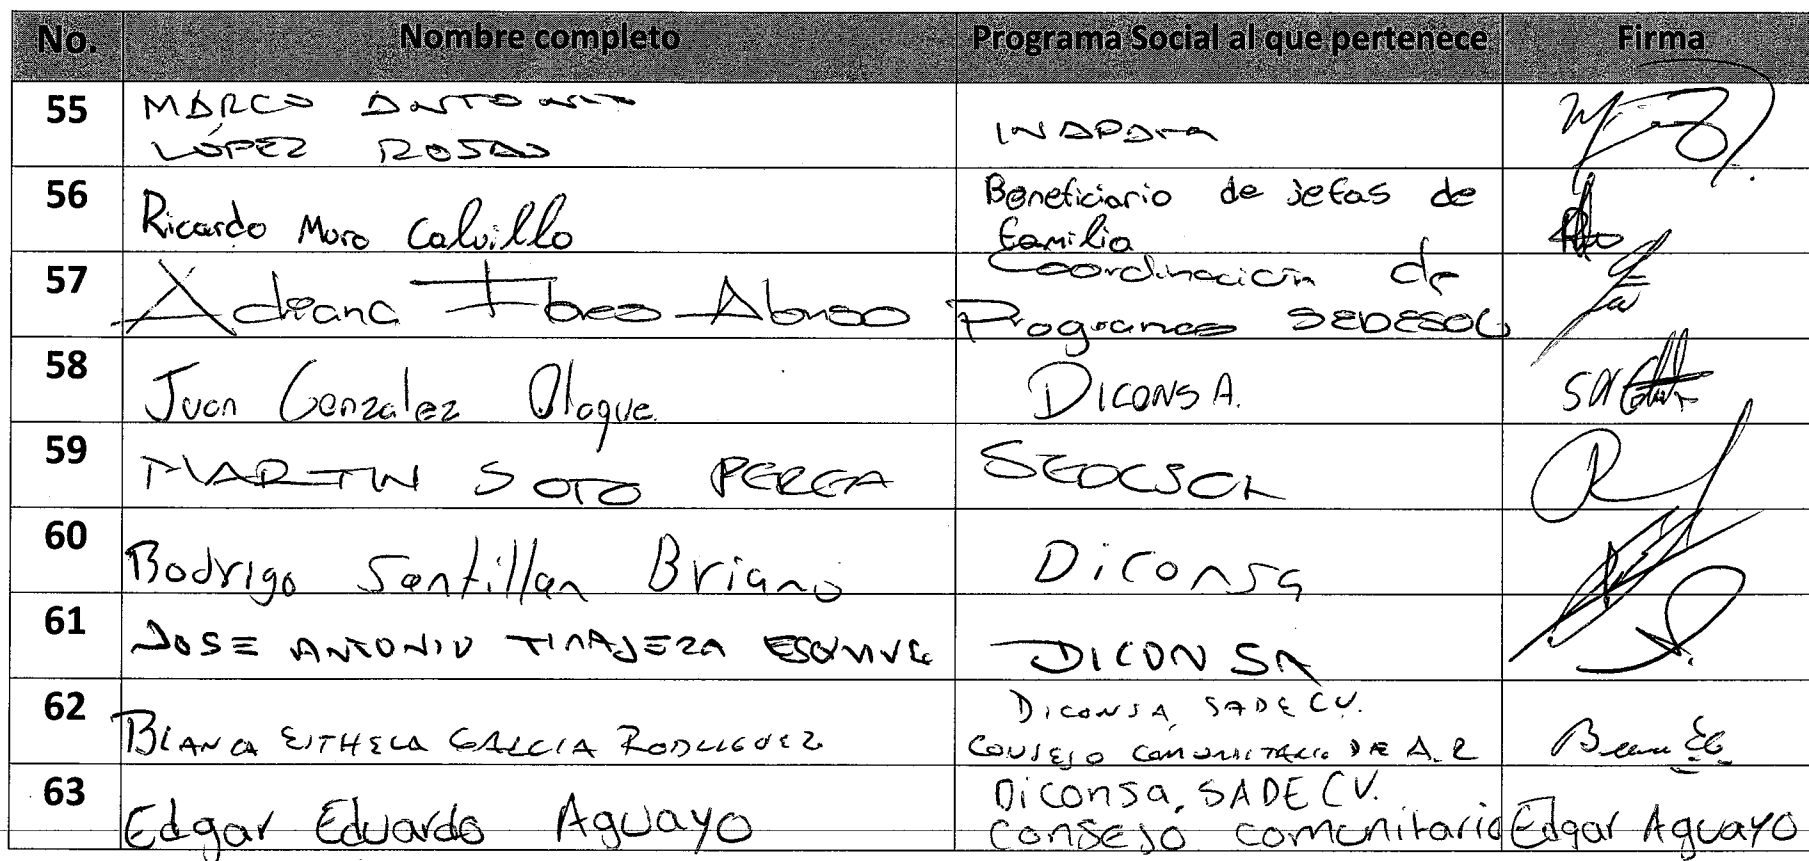 No. Nombre completo Programa Social al que pertenece Firma
55 MARCO ANTONIO
LÓPEZ ROSAS INAPAM
56 Ricardo Moro Calvillo Beneficiario de jefas de
familia
57 Adriana Flores Alonso Coordinación de
Programas SEDESOL
58 Juan Gonzalez Olague DICONSA.
59 MARTIN SOTO PEREA SEDESOL
60 Rodrigo Santillan Briano Diconsa
61 JOSE ANTONIO TINAJERA ESQUIVEL DICONSA
62 BLANCA ESTHELA GARCIA RODRIGUEZ DICONSA, SADECV.
CONSEJO COMUNITARIO DE A.R
63 Edgar Eduardo Aguayo Diconsa, SADECV.
consejo comunitario Edgar Aguayo